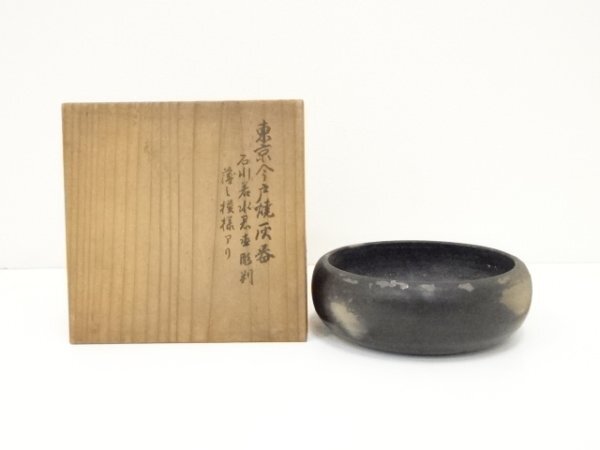 東京今戸焼灰器
石川若水君在彫判
薄シ模様アリ